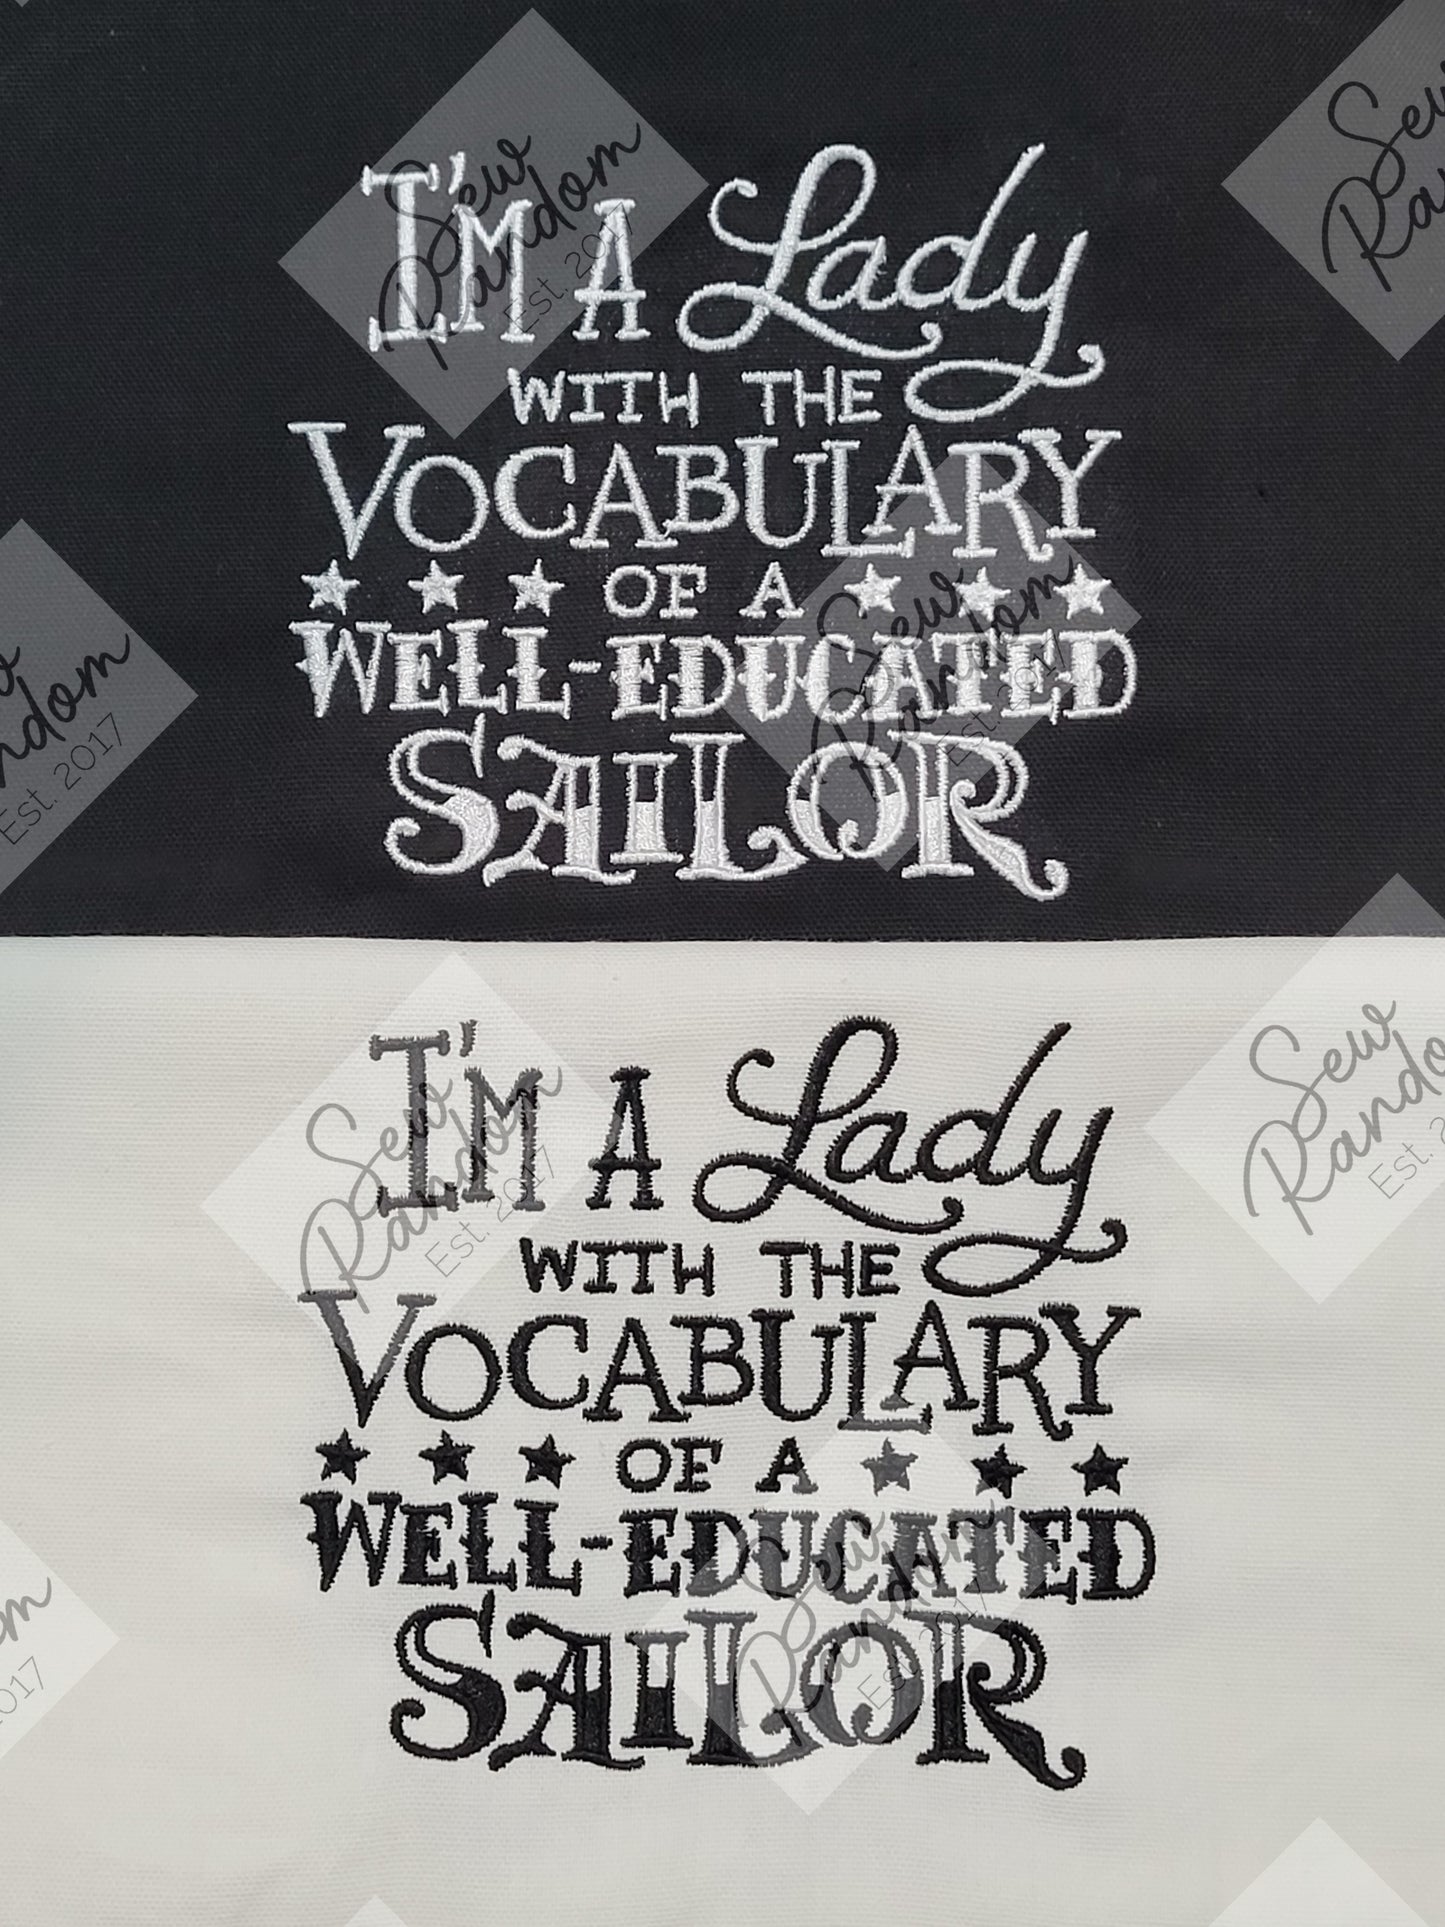 I'M A Lady
WITH THE
VOCABULARY
OF A
WELL-EDUCATED
SAILOR
Sew
Random
Est. 2017
Sew
Sew
Random
Est. 2017
I'M A Lady
WITH THE
VOCABULARY
OF A
WELL-EDUCATED
SAILOR
Sew
Random
Est. 2017
Sew
Random
Est.
Sew
Random
Est. 2017